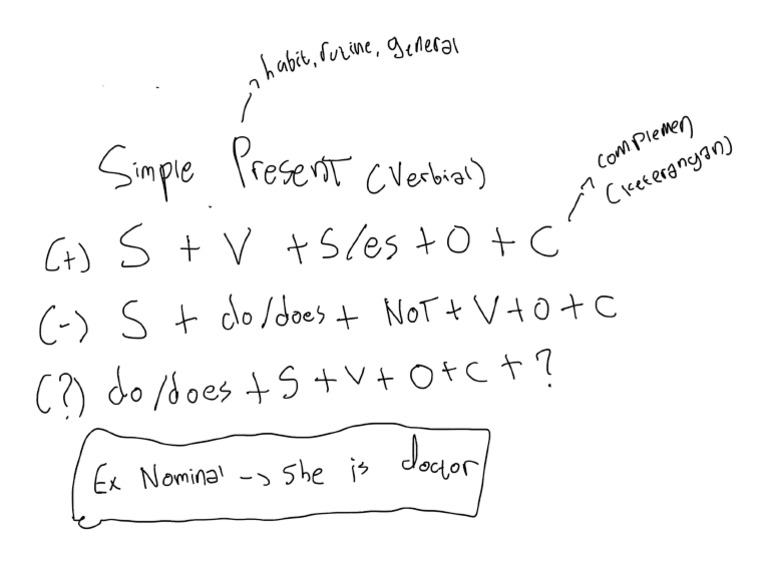 habit, rutine, general
Simple Present (Verbial)
complemen
(keterangan)
(+) S + V + S/es + O + C
(-) S + do/does + NOT + V + O + C
(?) do/does + S + V + O + C + ?
Ex Nominal -> She is doctor